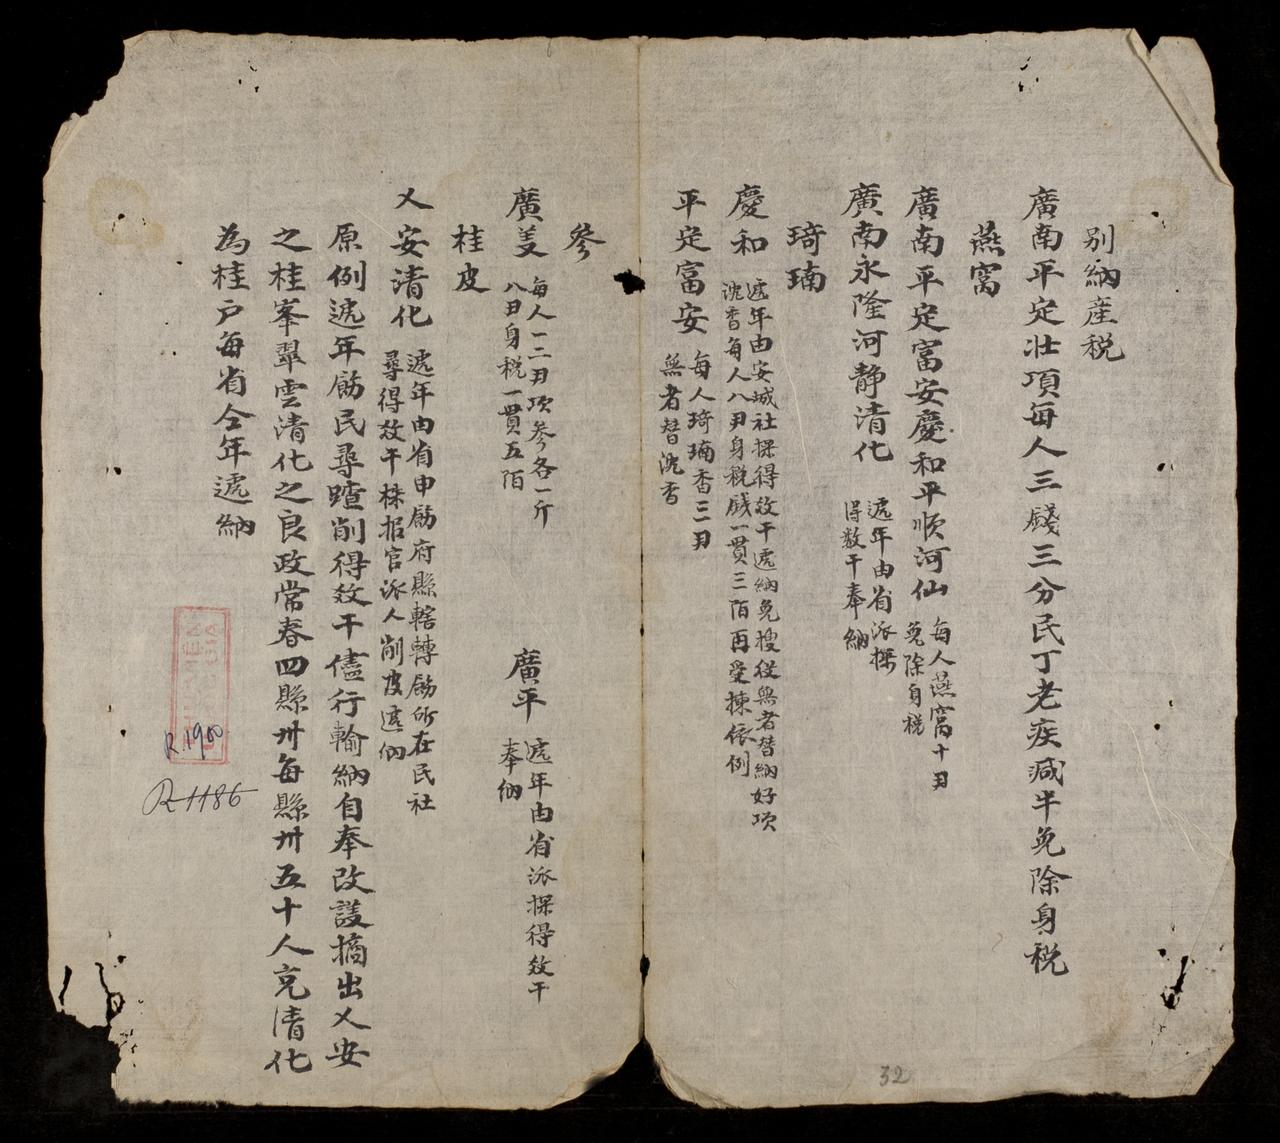 別納産税
廣南平定壮項每人三錢三分民丁老疾減半免除身税
燕窩
廣南平定富安慶和平順河仙
每人燕窩十刄
免除身税
廣南永隆河静清化
遞年由省派探
得数干奉納
琦㻡
慶和
遞年由安城社探得数干遞納免搜従無者替納好項
沈香每人八刄身税錢一貫三陌再受揀依例
平定富安
每人琦㻡香三刄
無者替沈香
參
廣美
每人一二刄項參各一斤
八刄身税一貫五陌
廣平
遞年由省派探得数干
奉納
桂皮
乂安清化
遞年由省申飭府縣轄轉飭所在民社
尋得数干株报官派人削皮遞納
原例遞年飭民尋蹅削得数干儘行輸納自奉改護摘出乂安
之桂峯翠雲清化之良政常春四縣卅每縣卅五十人充清化
為桂户每省仝年遞納
R.1900
R 1186
32